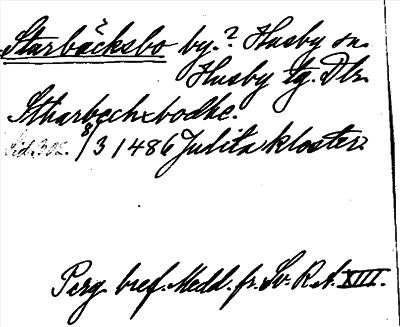 Starbäcksbo by.? Husby sn.
Husby tg. Dlr.
Stharbechxbodhe.
8/3 1486 Julita kloster.
Perg. bref. Medd. fr. Sv. R. A. XIII.